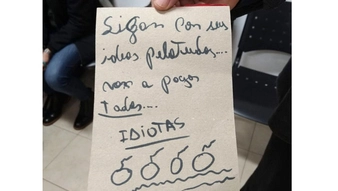 Sigan con sus
ideas pelotudas...
van a pagar
todas....
IDIOTAS